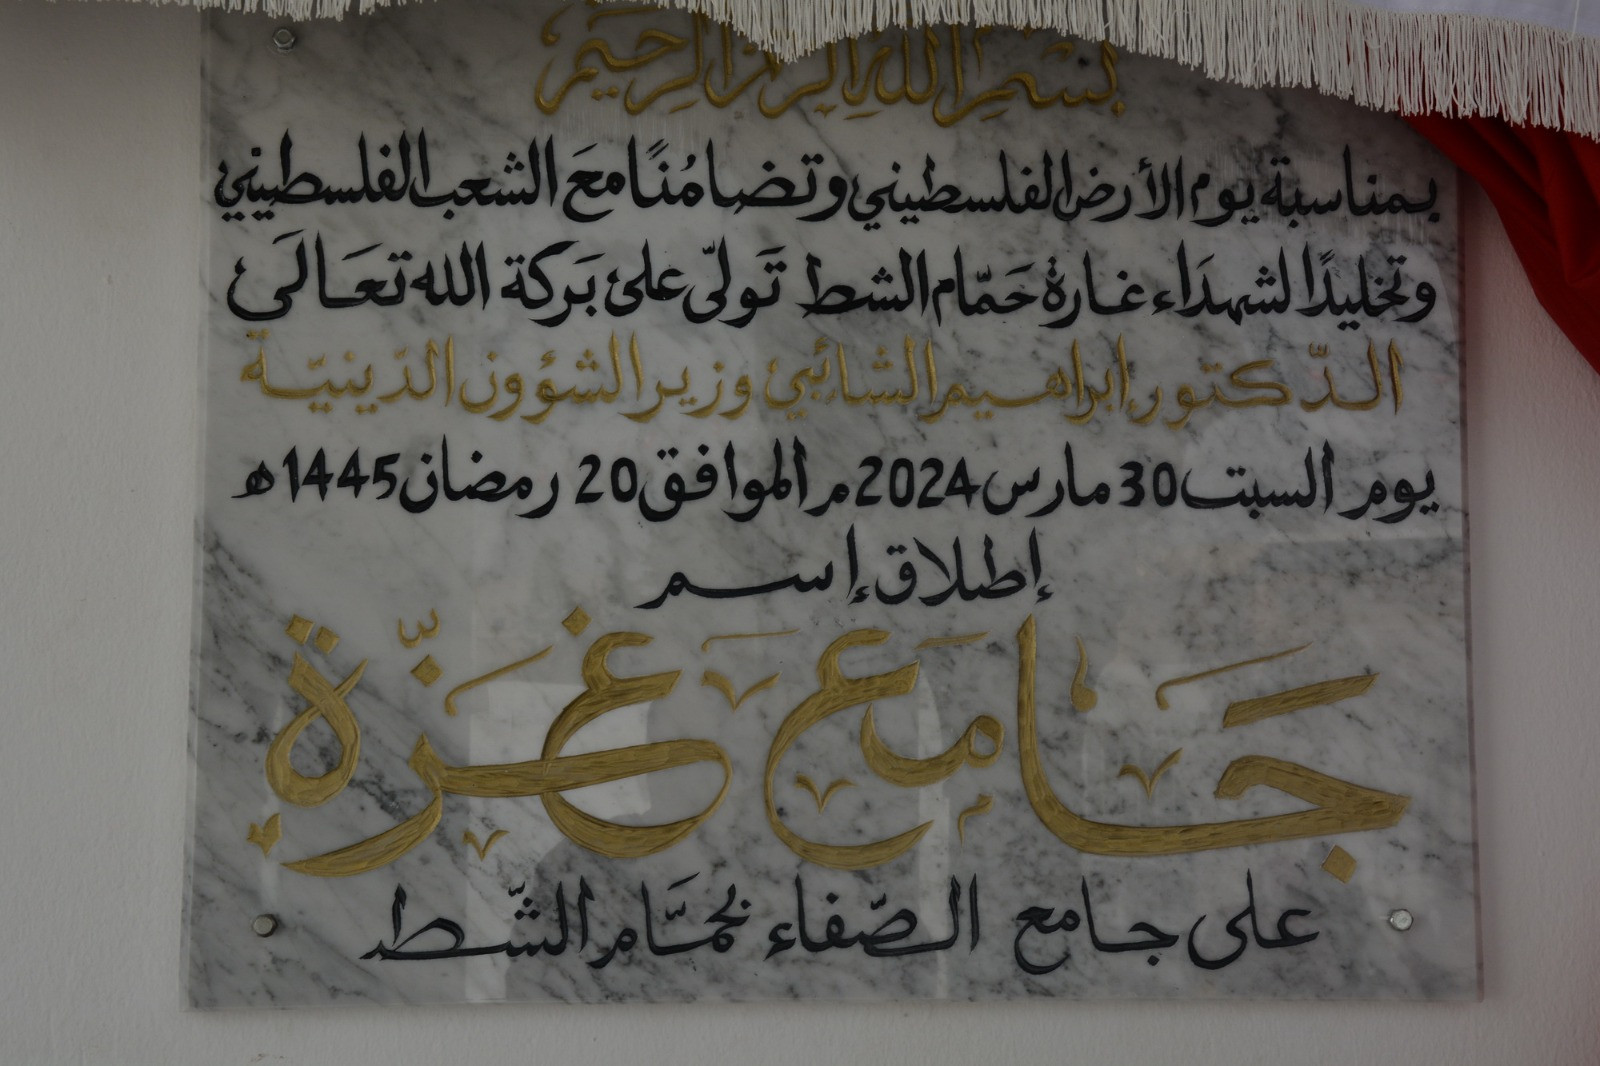 بسم الله الرحمن الرحيم
بمناسبة يوم الأرض الفلسطيني وتضامُنًا معَ الشعب الفلسطيني
وتخليدًا لشهدَاء غارة حَمّام الشط تَولّى على بَركة الله تعَالَى
الدّكتور إبراهيم الشائبي وزير الشؤون الدّينيّة
يوم السبت 30 مارس 2024م الموافق 20 رمضان 1445ه
إطلاق إسم
جَامع غزّة
على جامع الصّفاء بحمَّام الشّط